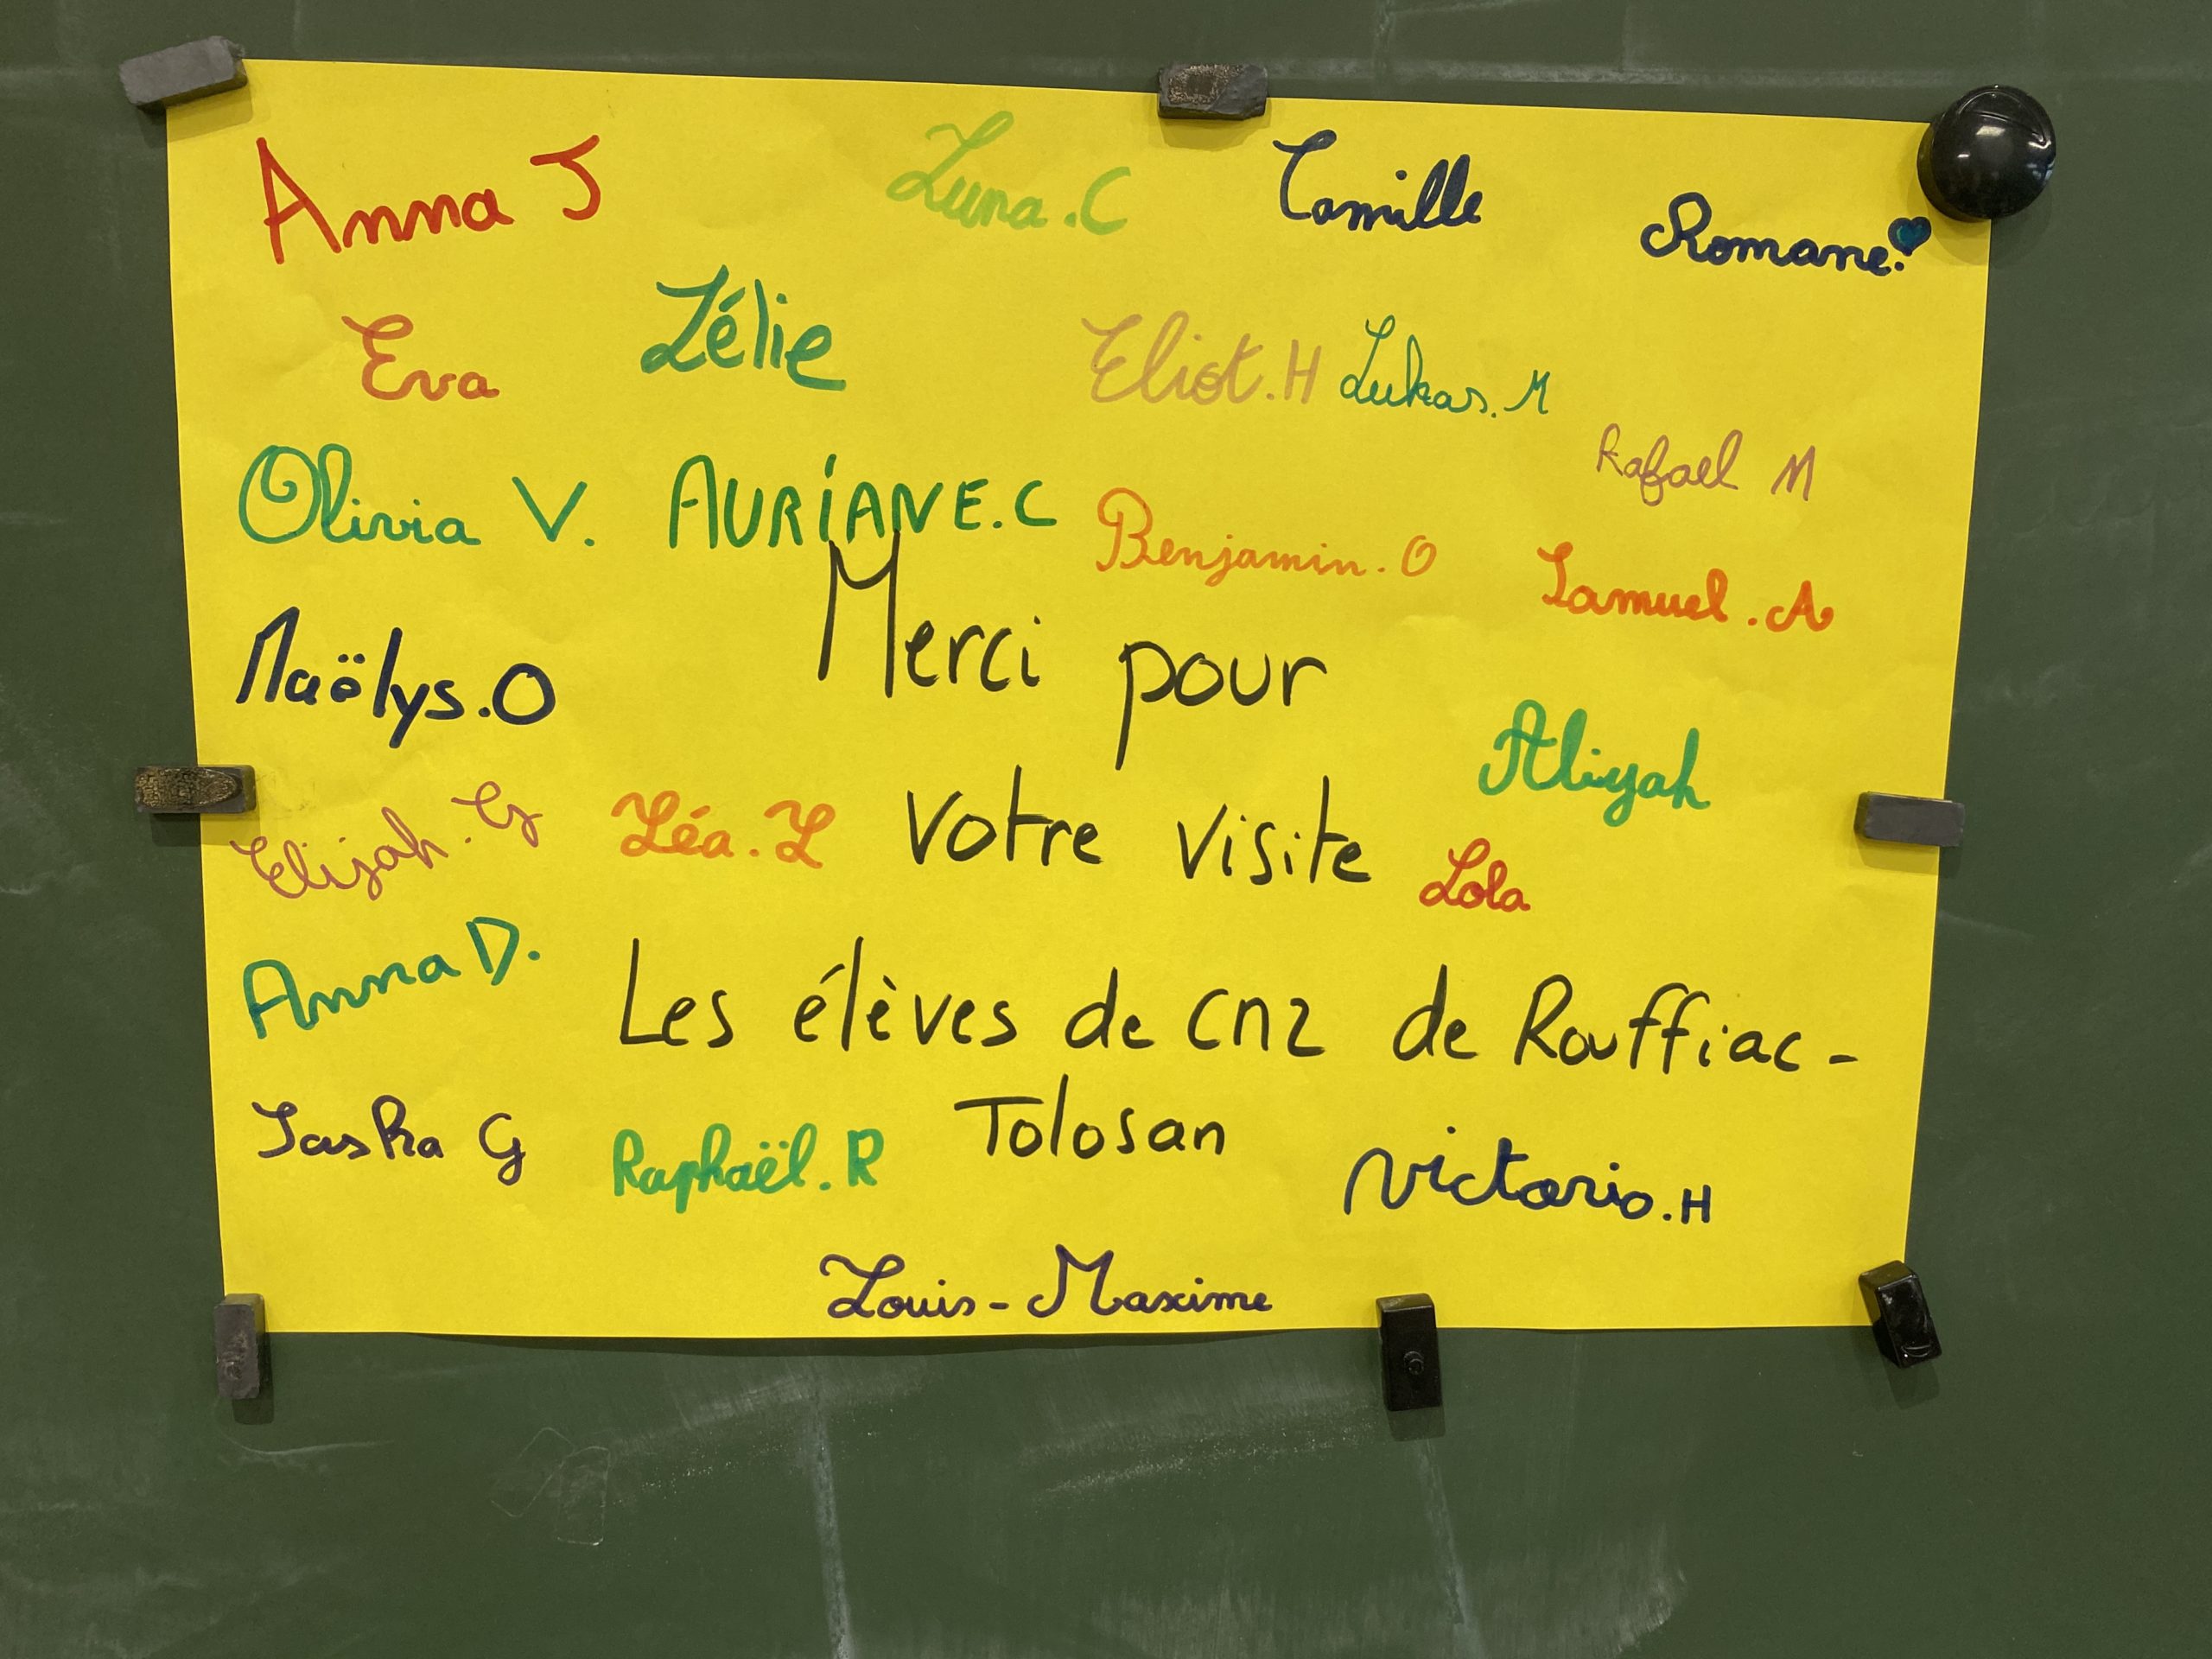 Anna J Luna.C Camille Romane.
Eva Zélie Eliot.H Lukas.M
Rafael M
Olivia V. AURIANE.C Benjamin.O Samuel.A
Merci pour
Maëlys.O
Aliyah
Elijah.G Léa.L votre visite Lola
Anna D.
Les élèves de CM2 de Rouffiac-
Tolosan
Sasha G Raphaël.R Victorio.H
Louis-Maxime